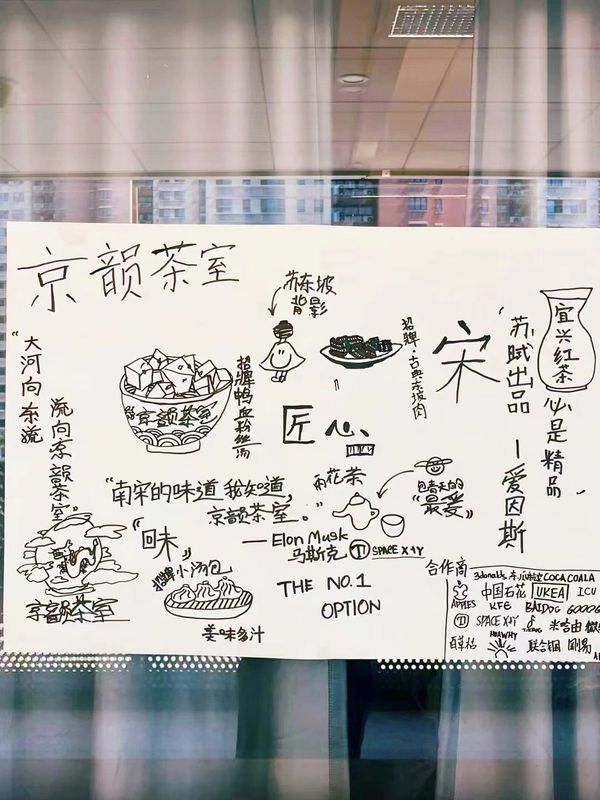 京韵茶室
苏东坡
背影
"大河向东流
流向京韵茶室"
京韵茶室
招牌鸭血粉丝汤
招牌·古典东坡肉
宋
"苏轼出品
必是精品"
—爱因斯
宜兴红茶
匠心
雨花茶
包青天的
"最爱"
"南宋的味道 我知道,
京韵茶室。"
— Elon Musk
马斯克 T SPACE X+Y
"回味"
招牌小汤包
美味多汁
京韵茶室
THE NO.1
OPTION
合作商
3donalds
COCA COALA
APPLES
中国石花
UKEA
ICU
KFE
BAIDOG
GOOOG
T SPACE X+Y
米哈由
百草姑
HUAWHY
联合锢
刚易